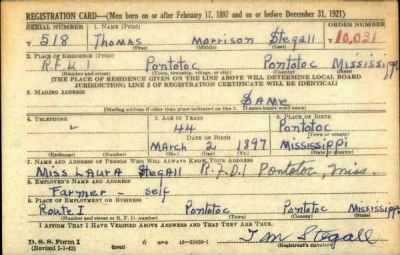 REGISTRATION CARD—(Men born on or after February 17, 1897 and on or before December 31, 1921)
SERIAL NUMBER 1. NAME (Print) ORDER NUMBER
T 518 Thomas Morrison Stegall 10,031
(First) (Middle) (Last)
2. PLACE OF RESIDENCE (Print)
R.F.D. 1 Pontotoc Pontotoc Mississippi
(Number and street) (Town, township, village, or city) (County) (State)
[THE PLACE OF RESIDENCE GIVEN ON THE LINE ABOVE WILL DETERMINE LOCAL BOARD
JURISDICTION; LINE 2 OF REGISTRATION CERTIFICATE WILL BE IDENTICAL]
3. MAILING ADDRESS
SAME
[Mailing address if other than place indicated on line 2. If same insert word same]
4. TELEPHONE 5. AGE IN YEARS 6. PLACE OF BIRTH
44 Pontotoc
DATE OF BIRTH (Town or county)
March 2 1897 Mississippi
(Exchange) (Number) (Mo.) (Day) (Yr.) (State or country)
7. NAME AND ADDRESS OF PERSON WHO WILL ALWAYS KNOW YOUR ADDRESS
Miss Laura Stegall R.F.D.1 Pontotoc, Miss.
8. EMPLOYER'S NAME AND ADDRESS
Farmer - self
9. PLACE OF EMPLOYMENT OR BUSINESS
Route 1 Pontotoc Pontotoc Mississippi
(Number and street or R. F. D. number) (Town) (County) (State)
I AFFIRM THAT I HAVE VERIFIED ABOVE ANSWERS AND THAT THEY ARE TRUE.
D. S. S. Form 1 T M Stegall
(Revised 1-1-42) (Registrant's signature)